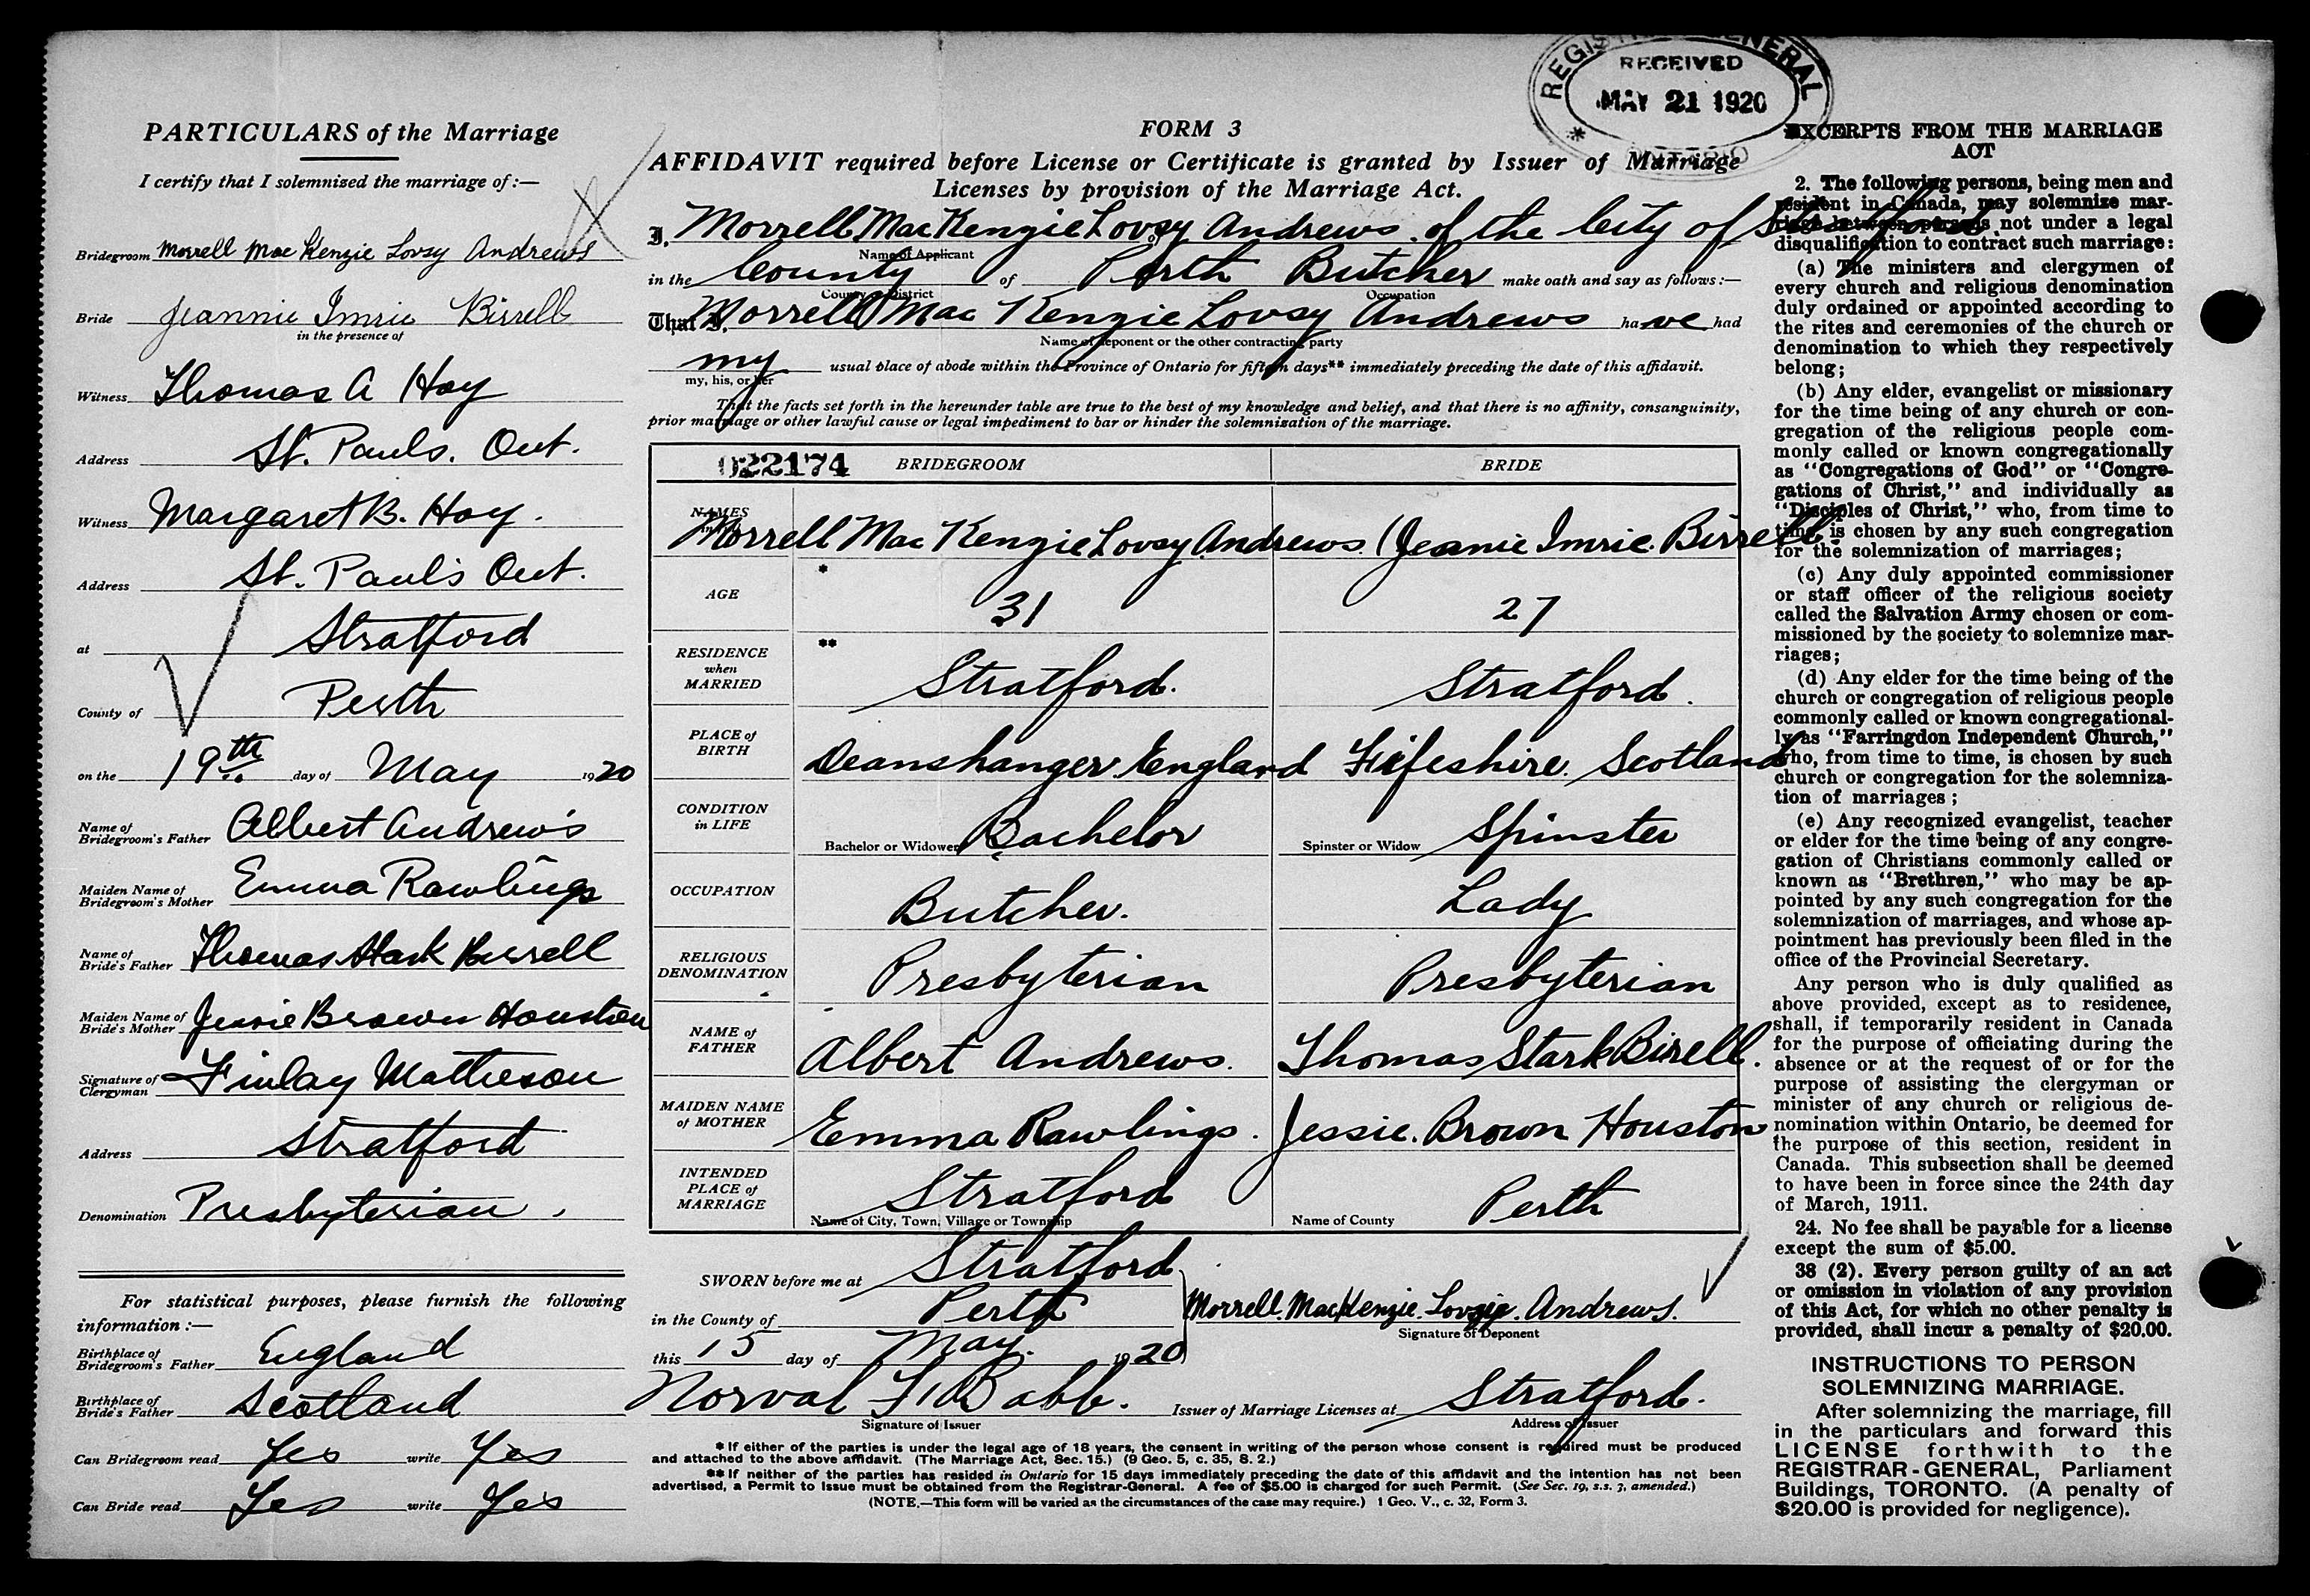 PARTICULARS of the Marriage
I certify that I solemnized the marriage of:—
Bridegroom Morrell Mac Kenzie Lovsy Andrews
Bride Jeannie Imrie Birrell
in the presence of
Witness Thomas A Hoy
Address St. Pauls. Ont.
Witness Margaret B. Hoy.
Address St. Paul's Ont.
at Stratford
County of Perth
on the 19th day of May 1920
Name of Bridegroom's Father Albert Andrews
Maiden Name of Bridegroom's Mother Emma Rawlings
Name of Bride's Father Thomas Stark Birrell
Maiden Name of Bride's Mother Jessie Brown Houston
Signature of Clergyman Finlay Matheson
Address Stratford
Denomination Presbyterian.
For statistical purposes, please furnish the following
information:—
Birthplace of Bridegroom's Father England
Birthplace of Bride's Father Scotland
Can Bridegroom read Yes write Yes
Can Bride read Yes write Yes
REGISTRAR GENERAL
RECEIVED
MAY 21 1920
ONTARIO
FORM 3
AFFIDAVIT required before License or Certificate is granted by Issuer of Marriage
Licenses by provision of the Marriage Act.
I, Morrell MacKenzie Lovsy Andrews of the City of Stratford
Name of Applicant
in the County of Perth Butcher make oath and say as follows:—
County or District Occupation
That I, Morrell Mac Kenzie Lovsy Andrews have had
Name of deponent or the other contracting party
my usual place of abode within the Province of Ontario for fifteen days** immediately preceding the date of this affidavit.
my, his, or her
That the facts set forth in the hereunder table are true to the best of my knowledge and belief, and that there is no affinity, consanguinity,
prior marriage or other lawful cause or legal impediment to bar or hinder the solemnization of the marriage.
022174 BRIDEGROOM BRIDE
NAMES in full Morrell Mac Kenzie Lovsy Andrews. Jeanie Imrie. Birrell.
AGE * 31 27
RESIDENCE when MARRIED ** Stratford. Stratford.
PLACE of BIRTH Deanshanger England Fifeshire. Scotland
CONDITION in LIFE Bachelor or Widower Bachelor Spinster or Widow Spinster
OCCUPATION Butcher. Lady
RELIGIOUS DENOMINATION Presbyterian Presbyterian
NAME of FATHER Albert Andrews. Thomas Stark Birell.
MAIDEN NAME of MOTHER Emma Rawlings. Jessie. Brown Houston
INTENDED PLACE of MARRIAGE Stratford Perth
Name of City, Town, Village or Township Name of County
SWORN before me at Stratford
in the County of Perth
this 15 day of May. 1920
Morrell. MacKenzie. Lovsy. Andrews.
Signature of Deponent
Norval F. Babb. Issuer of Marriage Licenses at Stratford.
Signature of Issuer Address of Issuer
* If either of the parties is under the legal age of 18 years, the consent in writing of the person whose consent is required must be produced
and attached to the above affidavit. (The Marriage Act, Sec. 15.) (9 Geo. 5, c. 35, S. 2.)
** If neither of the parties has resided in Ontario for 15 days immediately preceding the date of this affidavit and the intention has not been
advertised, a Permit to Issue must be obtained from the Registrar-General. A fee of $5.00 is charged for such Permit. (See Sec. 19, s.s. 3, amended.)
(NOTE.—This form will be varied as the circumstances of the case may require.) 1 Geo. V., c. 32, Form 3.
EXCERPTS FROM THE MARRIAGE
ACT
2. The following persons, being men and
resident in Canada, may solemnize mar-
riage between persons not under a legal
disqualification to contract such marriage:
(a) The ministers and clergymen of
every church and religious denomination
duly ordained or appointed according to
the rites and ceremonies of the church or
denomination to which they respectively
belong;
(b) Any elder, evangelist or missionary
for the time being of any church or con-
gregation of the religious people com-
monly called or known congregationally
as "Congregations of God" or "Congre-
gations of Christ," and individually as
"Disciples of Christ," who, from time to
time, is chosen by any such congregation
for the solemnization of marriages;
(c) Any duly appointed commissioner
or staff officer of the religious society
called the Salvation Army chosen or com-
missioned by the society to solemnize mar-
riages;
(d) Any elder for the time being of the
church or congregation of religious people
commonly called or known congregational-
ly as "Farringdon Independent Church,"
who, from time to time, is chosen by such
church or congregation for the solemniza-
tion of marriages;
(e) Any recognized evangelist, teacher
or elder for the time being of any congre-
gation of Christians commonly called or
known as "Brethren," who may be ap-
pointed by any such congregation for the
solemnization of marriages, and whose ap-
pointment has previously been filed in the
office of the Provincial Secretary.
Any person who is duly qualified as
above provided, except as to residence,
shall, if temporarily resident in Canada
for the purpose of officiating during the
absence or at the request of or for the
purpose of assisting the clergyman or
minister of any church or religious de-
nomination within Ontario, be deemed for
the purpose of this section, resident in
Canada. This subsection shall be deemed
to have been in force since the 24th day
of March, 1911.
24. No fee shall be payable for a license
except the sum of $5.00.
38 (2). Every person guilty of an act
or omission in violation of any provision
of this Act, for which no other penalty is
provided, shall incur a penalty of $20.00.
INSTRUCTIONS TO PERSON
SOLEMNIZING MARRIAGE.
After solemnizing the marriage, fill
in the particulars and forward this
LICENSE forthwith to the
REGISTRAR-GENERAL, Parliament
Buildings, TORONTO. (A penalty of
$20.00 is provided for negligence).